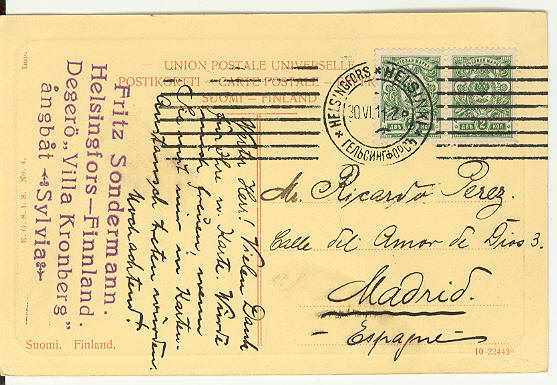 UNION POSTALE UNIVERSELLE
POSTIKORTTI – CARTE POSTALE –
SUOMI – FINLAND
HELSINGFORS * HELSINKI *
ГЕЛЬСИНГФОРСЪ
30.VI.11
Fritz Sondermann.
Helsingfors–Finnland.
Degerö „Villa Kronberg"
ångbåt „Sylvia"
Werter Herr! Vielen Dank
für Ihre w. Karte. Würde
mich freuen, wenn
Sie mit mir in Karten-
Austausch treten würden.
Hochachtend
Mr. Ricardo Perez.
Calle del Amor de Dios 3.
Madrid.
– Espagne –
Imp.
E. G. S. i. S. No. 4.
Suomi. Finland.
10-22443